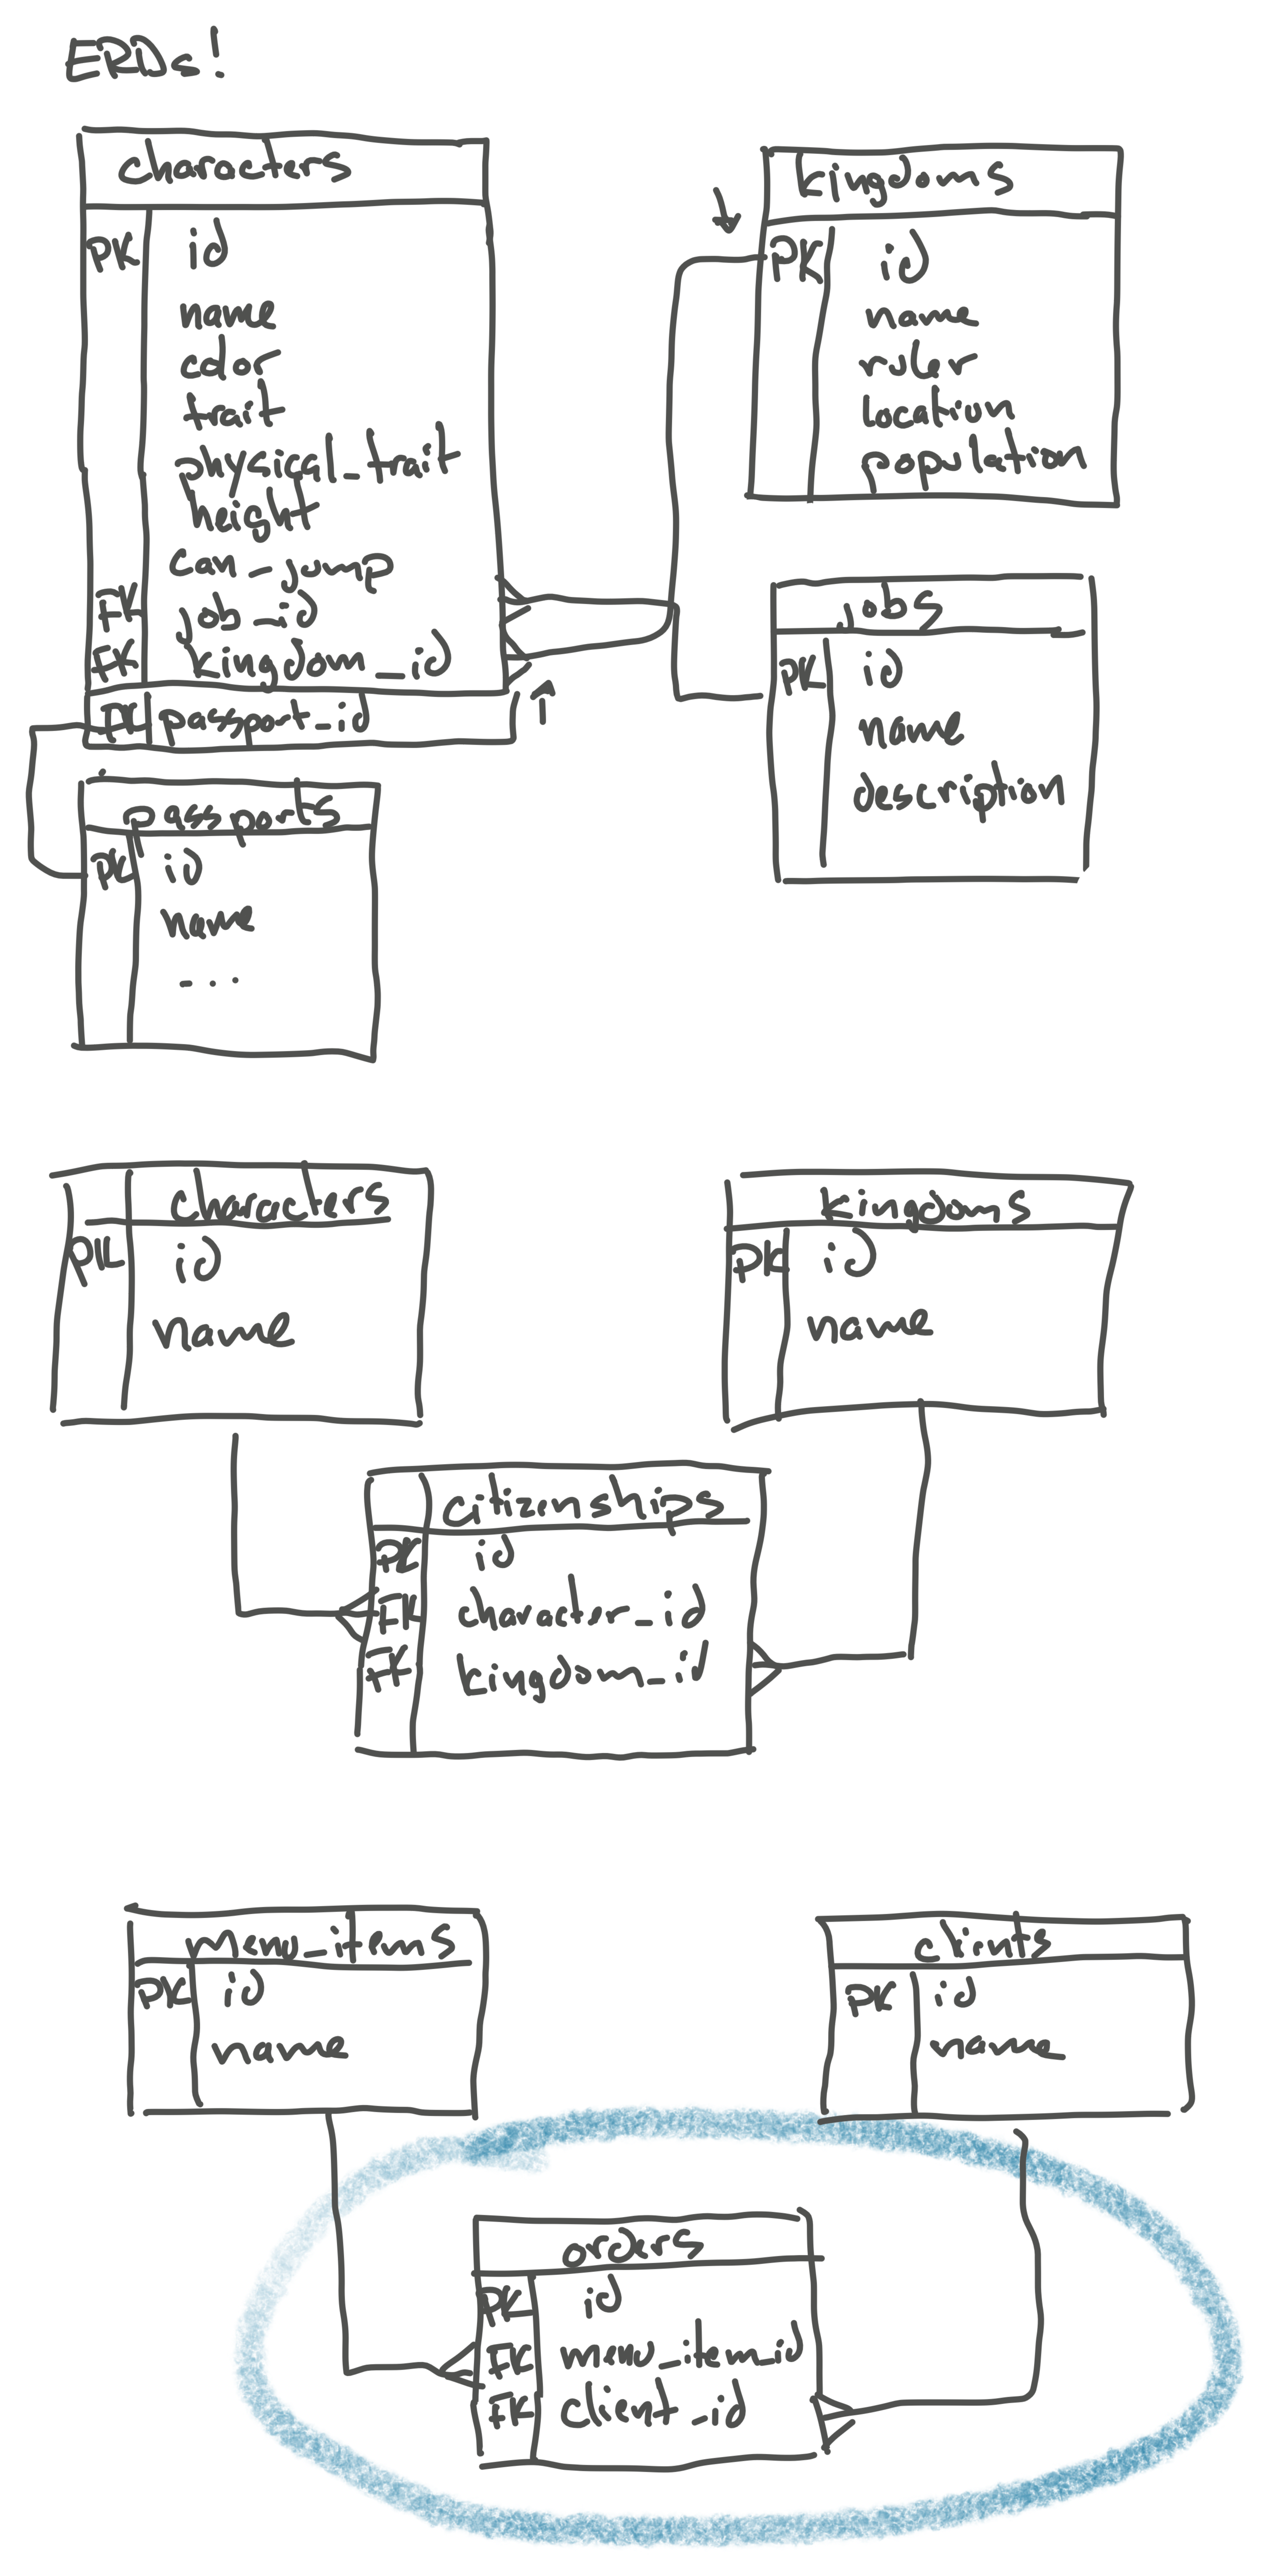 ERDs!
characters
PK id
name
color
trait
physical_trait
height
can_jump
FK job_id
FK kingdom_id
FK passport_id
kingdoms
PK id
name
ruler
location
population
jobs
PK id
name
description
passports
PK id
name
...
characters
PK id
name
kingdoms
PK id
name
citizenships
PK id
FK character_id
FK kingdom_id
menu_items
PK id
name
clients
PK id
name
orders
PK id
FK menu_item_id
FK client_id